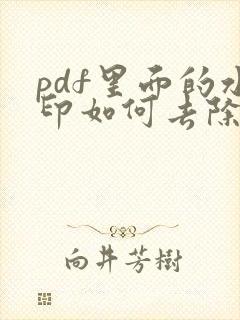 pdf里面的水
印如何去除
向井芳樹